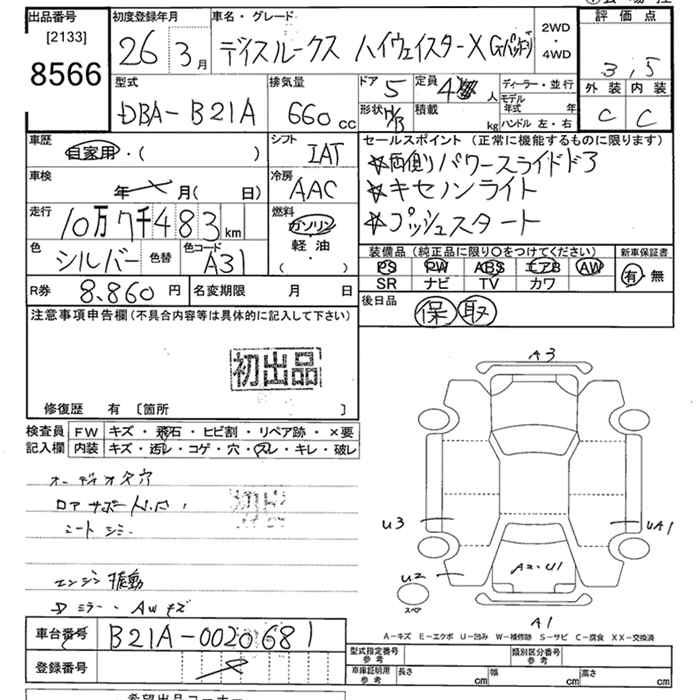 出品番号
[2133]
8566
初度登録年月
26 3月
車名・グレード
デイズルークス ハイウェイスターX
2WD
・
4WD
評価点
3.5
外装 内装
C C
型式
DBA-B21A
排気量
660cc
ドア 5
形状
定員 4 人
積載 kg
ディーラー・並行
モデル年式 年
ハンドル 左・右
車歴
自家用・( )
シフト
IAT
セールスポイント (正常に機能するものに限ります)
☆両側パワースライドドア
☆キセノンライト
☆プッシュスタート
車検
年 月( 日)
冷房
AAC
走行
10万7千483km
燃料
ガソリン
軽油
( ・ )
色
シルバー
色替
色コード
A31
装備品 (純正品に限り〇をつけてください)
PS PW ABS エアB AW
SR ナビ TV カワ
新車保証書
有・無
R券 8,860円
名変期限 月 日
後日品
保 取
注意事項申告欄 (不具合内容等は具体的に記入して下さい)
初出品
修復歴 有 〔箇所 〕
検査員記入欄
FW キズ・飛石・ヒビ割・リペア跡・×要
内装 キズ・汚レ・コゲ・穴・スレ・キレ・破レ
オーディオ欠穴
シートシミ
エンジン振動
Dミラー・AWキズ
A3
U3
UA1
U2
A2-U1
スペア
A1
A-キズ E-エクボ U-凹み W-補修跡 S-サビ C-腐食 XX-交換済
車台番号 B21A-0020681
登録番号
型式指定番号 参考
類別区分番号 参考
車庫証明用 参考
長さ cm
幅 cm
高さ cm
希望出品コーナー